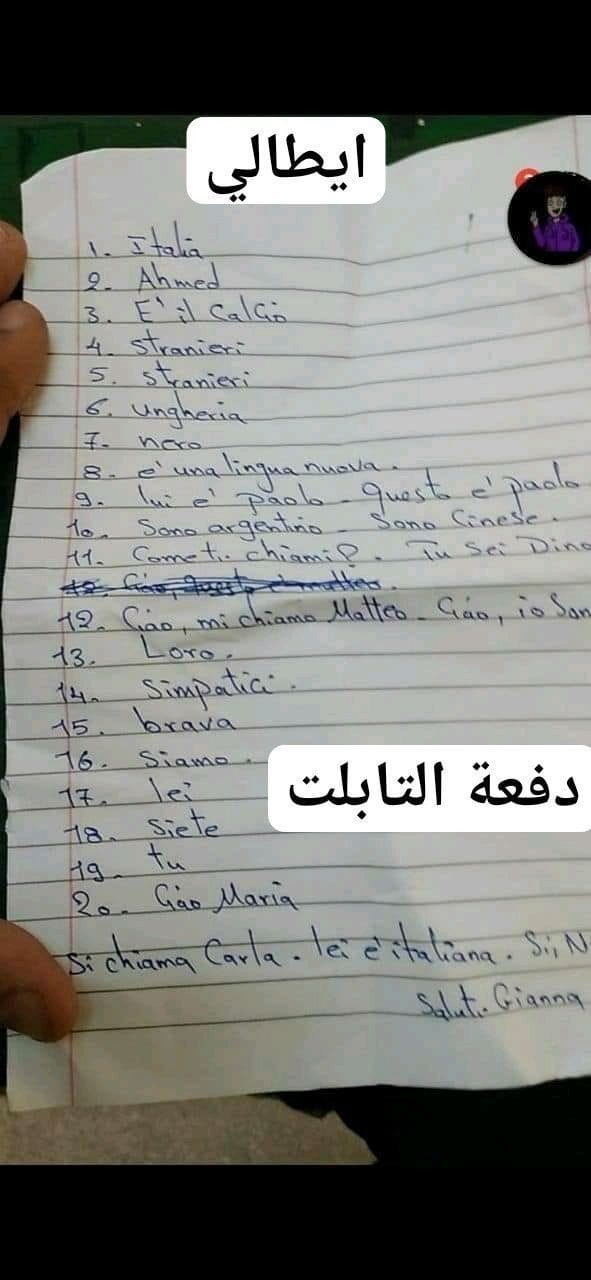 ايطالي
1. Italia
2. Ahmed
3. E' il Calcio
4. stranieri
5. stranieri
6. ungheria
7. nero
8. e' una lingua nuova.
9. lui e' paolo - questo e' paolo
10. Sono argentino - Sono Cinese.
11. Come ti chiami? . Tu sei Dino
12. Ciao, mi chiamo Matteo - Ciao, io Son
13. Loro.
14. Simpatici.
15. brava
16. Siamo.
دفعة التابلت
17. lei
18. siete
19. tu
20. Ciao Maria
Si chiama Carla. lei e' italiana. Si, N
Saluti Gianna